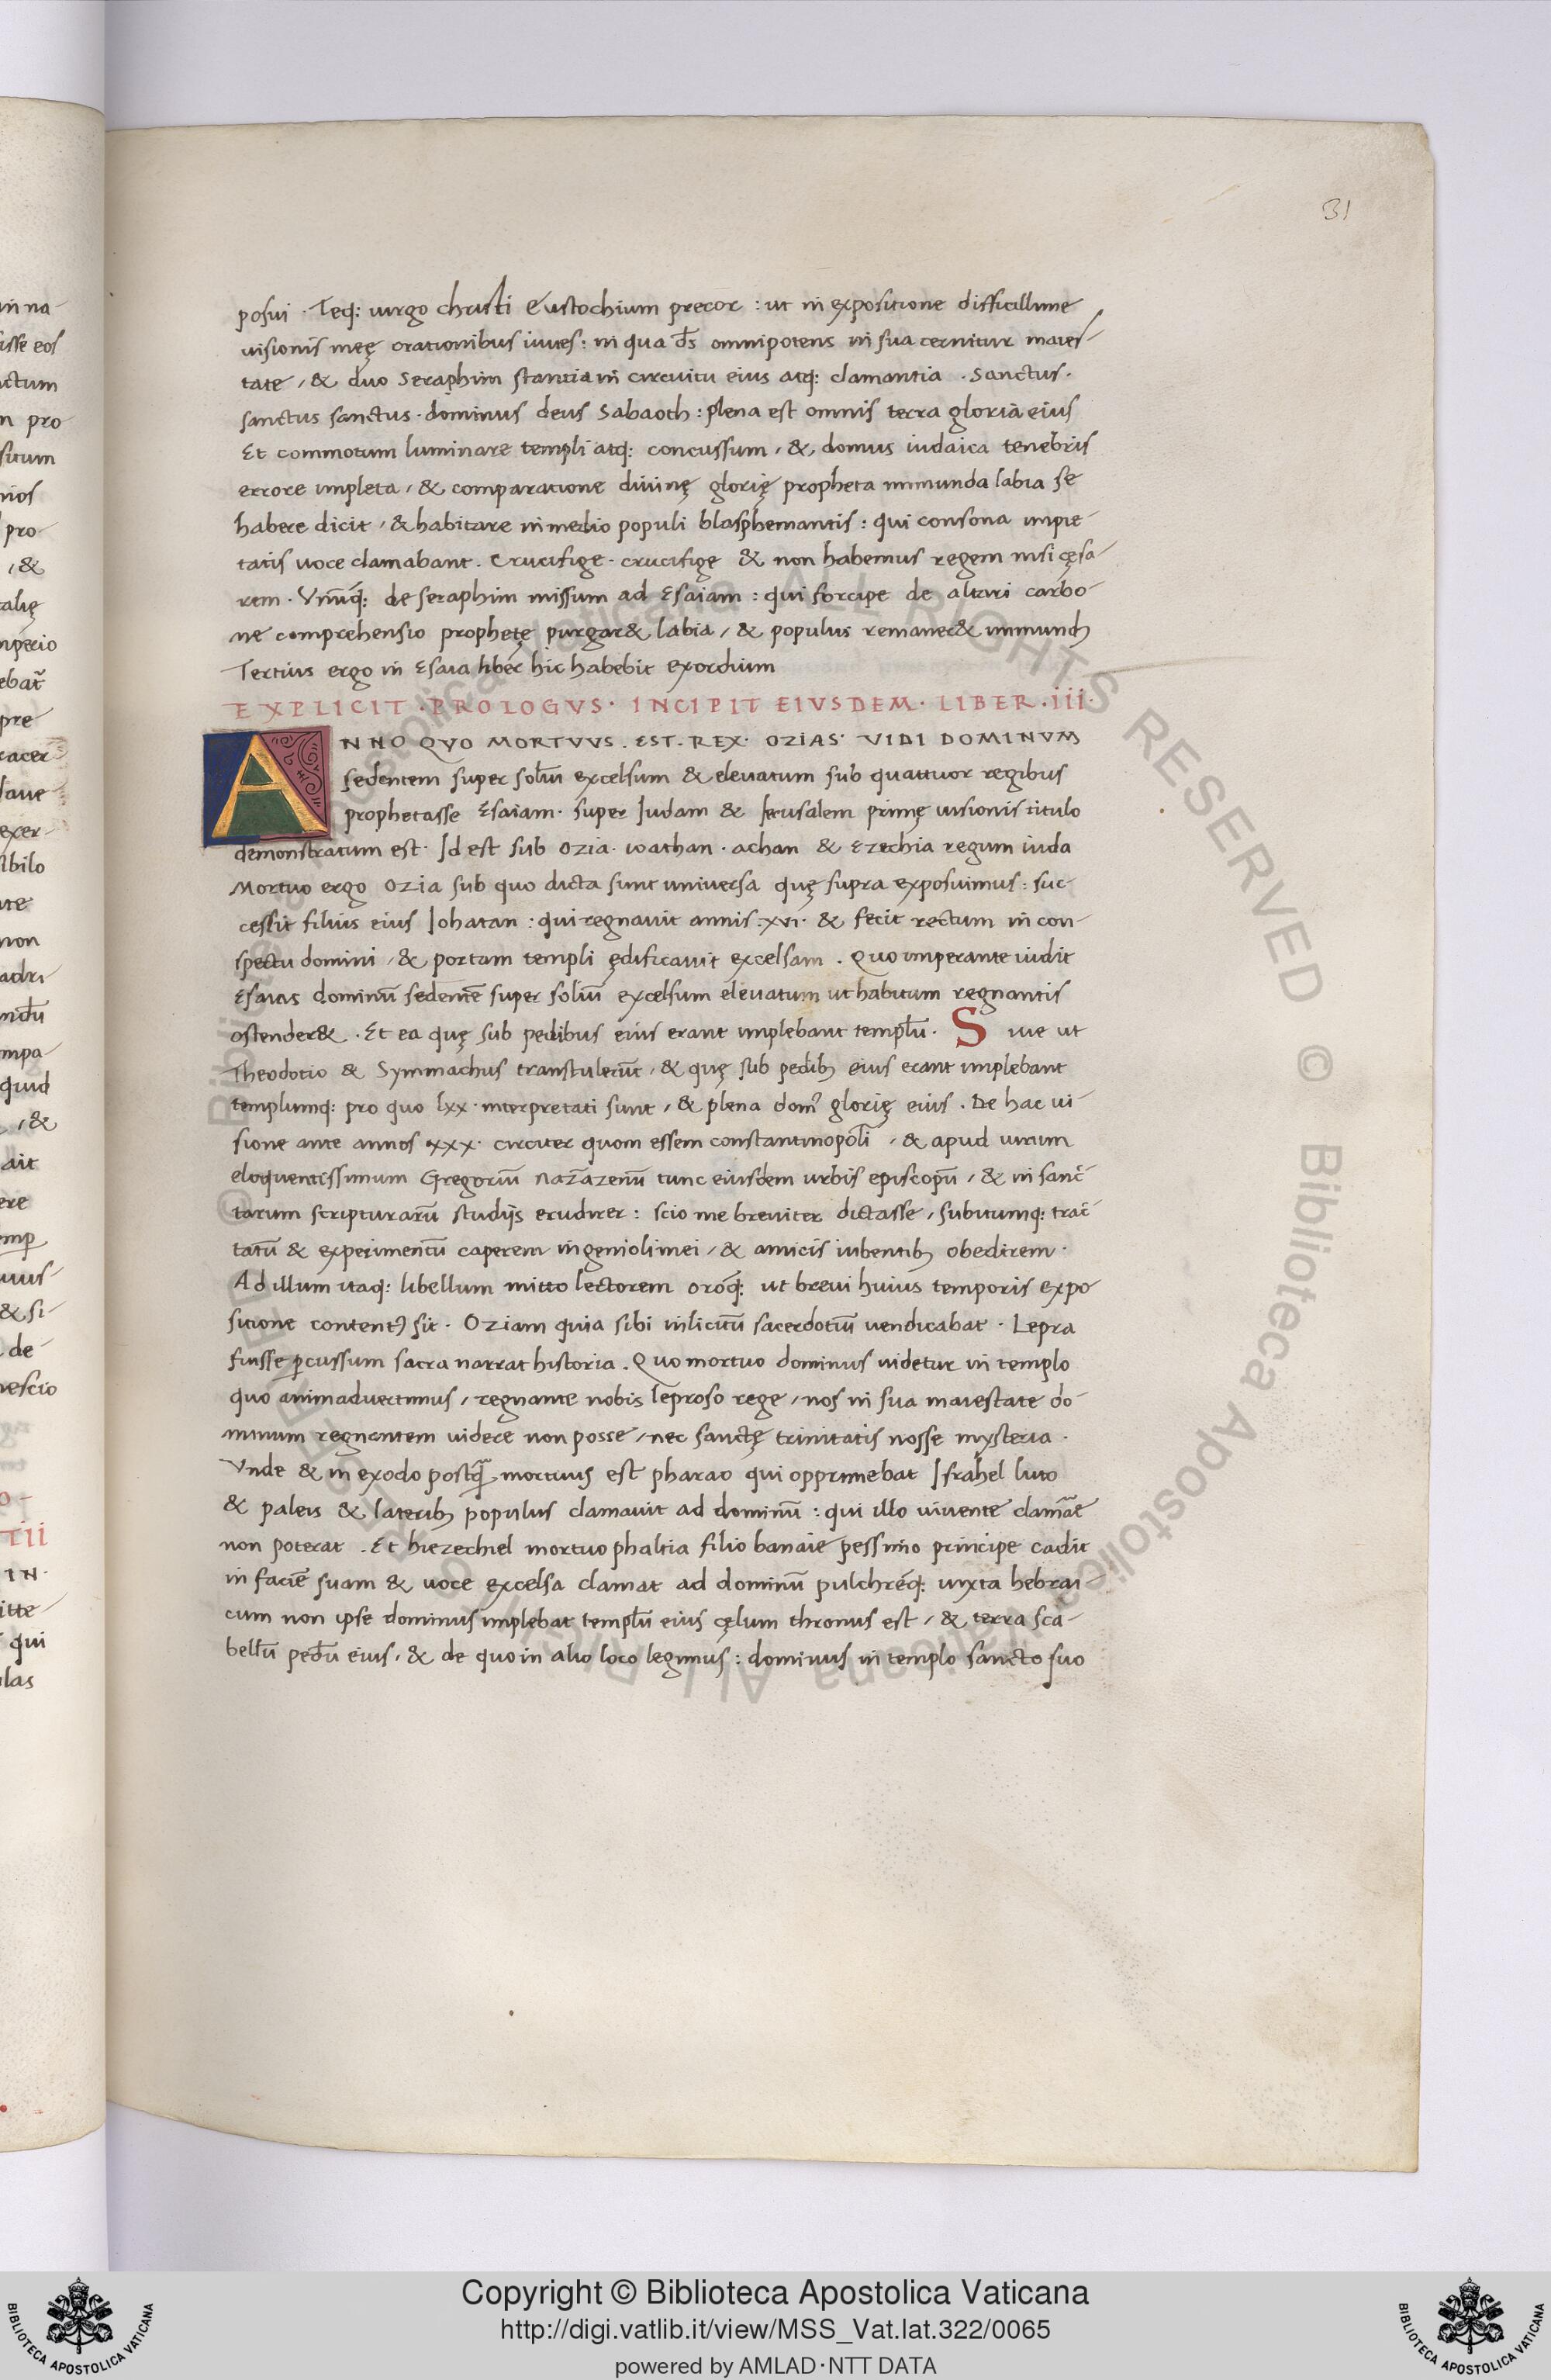 31
posui . Teq: uirgo christi Eustochium precor : ut in expositione difficillime
uisionis meę orationibus iuues : in qua d̅s omnipotens in sua cernitur maies
tate , & duo Seraphim stantia in circuitu eius atq: clamantia . Sanctus .
sanctus sanctus . dominus deus Sabaoth : plena est omnis terra gloria eius
Et commotum luminare templi atq: concussum , & domus iudaica tenebris
errore impleta , & comparatione diuinę glorię propheta immunda labia se
habere dicit , & habitare in medio populi blasphemantis : qui consona impie-
tatis uoce clamabant . Crucifige . crucifige & non habemus regem nisi cęsa-
rem . Vnu̅q: de seraphim missum ad Esaiam : qui forcipe de altari carbo-
ne comprehensio prophetę purgar& labia , & populus remaner& immund
Tertius ergo in Esaia liber hic habebit exordium
EXPLICIT . PROLOGVS . INCIPIT EIVSDEM . LIBER . iii .
ANNO QVO MORTVVS . EST . REX . OZIAS . VIDI DOMINVM
sedentem super soliu̅ excelsum & eleuatum sub quattuor regibus
prophetasse Esaiam . super Iudam & Ierusalem primę uisionis titulo
demonstratum est . Id est sub Ozia . ioathan . achan & Ezechia regum iuda
Mortuo ergo Ozia sub quo dicta sunt universa quę supra exposuimus : suc-
cessit filius eius Iohatan : qui regnauit annis . xvi . & fecit rectum in con-
spectu domini , & portam templi ędificauit excelsam . Quo imperante uidit
Esaias dominu̅ sedente̅ super soliu̅ excelsum eleuatum ut habitum regnantis
ostender& . Et ea quę sub pedibus eius erant implebant templu̅ . Siue ut
Theodotio & Symmachus transtuleru̅t , & quę sub pedib; eius erant implebant
templumq: pro quo lxx . interpretati sunt , & plena dom' glorię eius . De hac ui-
sione ante annos xxx . circiter quom essem constantinopoli , & apud uirum
eloquentissimum Gregoriu̅ naza̅zenu̅ tunc eiusdem urbis episcopu̅ , & in sanc-
tarum scripturaru̅ studijs erudirer : scio me breuiter dictasse , subitumq: trac-
tatu̅ & experimentu̅ caperem ingenioli mei , & amicis iubentib; obedirem .
Ad illum itaq: libellum mitto lectorem oroq: ut breui huius temporis expo
sitione content' sit . Oziam quia sibi inlicitu̅ sacerdotiu̅ uendicabat . Lepra
fuisse p̱cussum sacra narrat historia . Quo mortuo dominus uidetur in templo
quo animaduertimus , regnante nobis leproso rege , nos in sua maiestate do-
minum regnantem uidere non posse , nec sanctę trinitatis nosse mysteria .
Vnde & in exodo postq̅ mortuus est pharao qui opprimebat Israhel luto
& paleis & laterib; populus clamauit ad dominu̅ : qui illo uiuente clama̅e
non poterat . Et hiezechiel mortuo phaltia filio banaie pessimo principe cadit
in facie̅ suam & uoce excelsa clamat ad dominu̅ pulchreq: iuxta hebrai-
cum non ipse dominus implebat templu̅ eius cęlum thronus est , & terra sca-
bellu̅ pedu̅ eius , & de quo in alio loco legimus : dominus in templo sancto suo
Copyright © Biblioteca Apostolica Vaticana
http://digi.vatlib.it/view/MSS_Vat.lat.322/0065
powered by AMLAD·NTT DATA